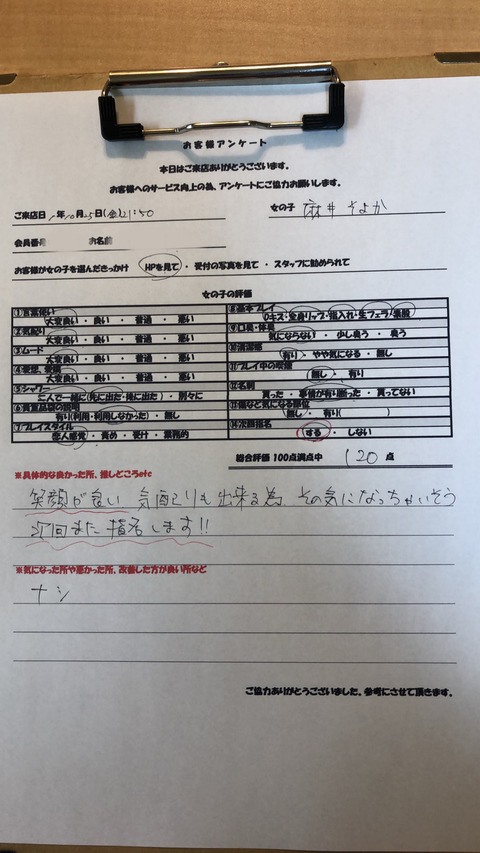 お客様アンケート
本日はご来店ありがとうございます。
お客様へのサービス向上の為、アンケートにご協力お願いします。
ご来店日 1年10月25日(金)21:50 女の子 麻井 そよか
会員番号 お名前
お客様が女の子を選んだきっかけ HPを見て ・ 受付の写真を見て ・ スタッフに勧められて
女の子の評価
①言葉使い
大変良い ・ 良い ・ 普通 ・ 悪い
②気配り
大変良い ・ 良い ・ 普通 ・ 悪い
③ムード
大変良い ・ 良い ・ 普通 ・ 悪い
大変良い ・ 良い ・ 普通 ・ 悪い
⑤シャワー
二人で一緒に(先に出た・後に出た) ・ 別々に
⑥貴重品袋の説明
有り(利用・利用しなかった) ・ 無し
⑦プレイスタイル
恋人感覚 ・ 責め ・ 受け ・ 業務的
⑧基本プレイ
Dキス・全身リップ・指入れ・生フェラ・素股
⑨口臭・体臭
気にならない ・ 少し臭う ・ 臭う
有り ・ やや気になる ・ 無し
⑪プレイ中の喫煙
無し ・ 有り
⑫名刺
貰った ・ 事情が有り断った ・ 貰ってない
⑬傷など気になる部位
無し ・ 有り( )
⑭次回指名
する ・ しない
総合評価 100点満点中 120 点
※具体的な良かった所、推しどころetc
笑顔が良い 気配りも出来る為、その気になっちゃいそう
次回また指名します!!
※気になった所や悪かった所、改善した方が良い所など
ナシ
ご協力ありがとうございました。参考にさせて頂きます。